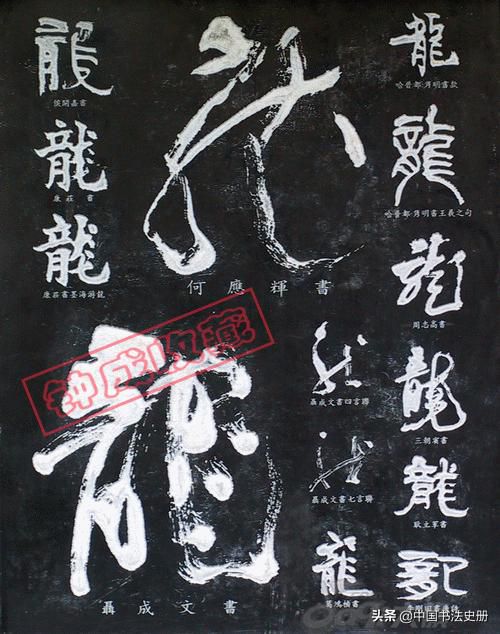 龍
侯開嘉書
龍
康莊書
龍
康莊書墨海游龍
龍
何應輝書
龍
聶成文書
龍
哈普都·隽明書款
龍
哈普都·隽明書王羲之句
龍
周志高書
龍
三朝賓書
龍
聶成文書四言聯
龍
聶成文書七言聯
龍
耿立軍書
龍
葛鴻楨書
龍
钟成收藏
头条 @中国书法史册